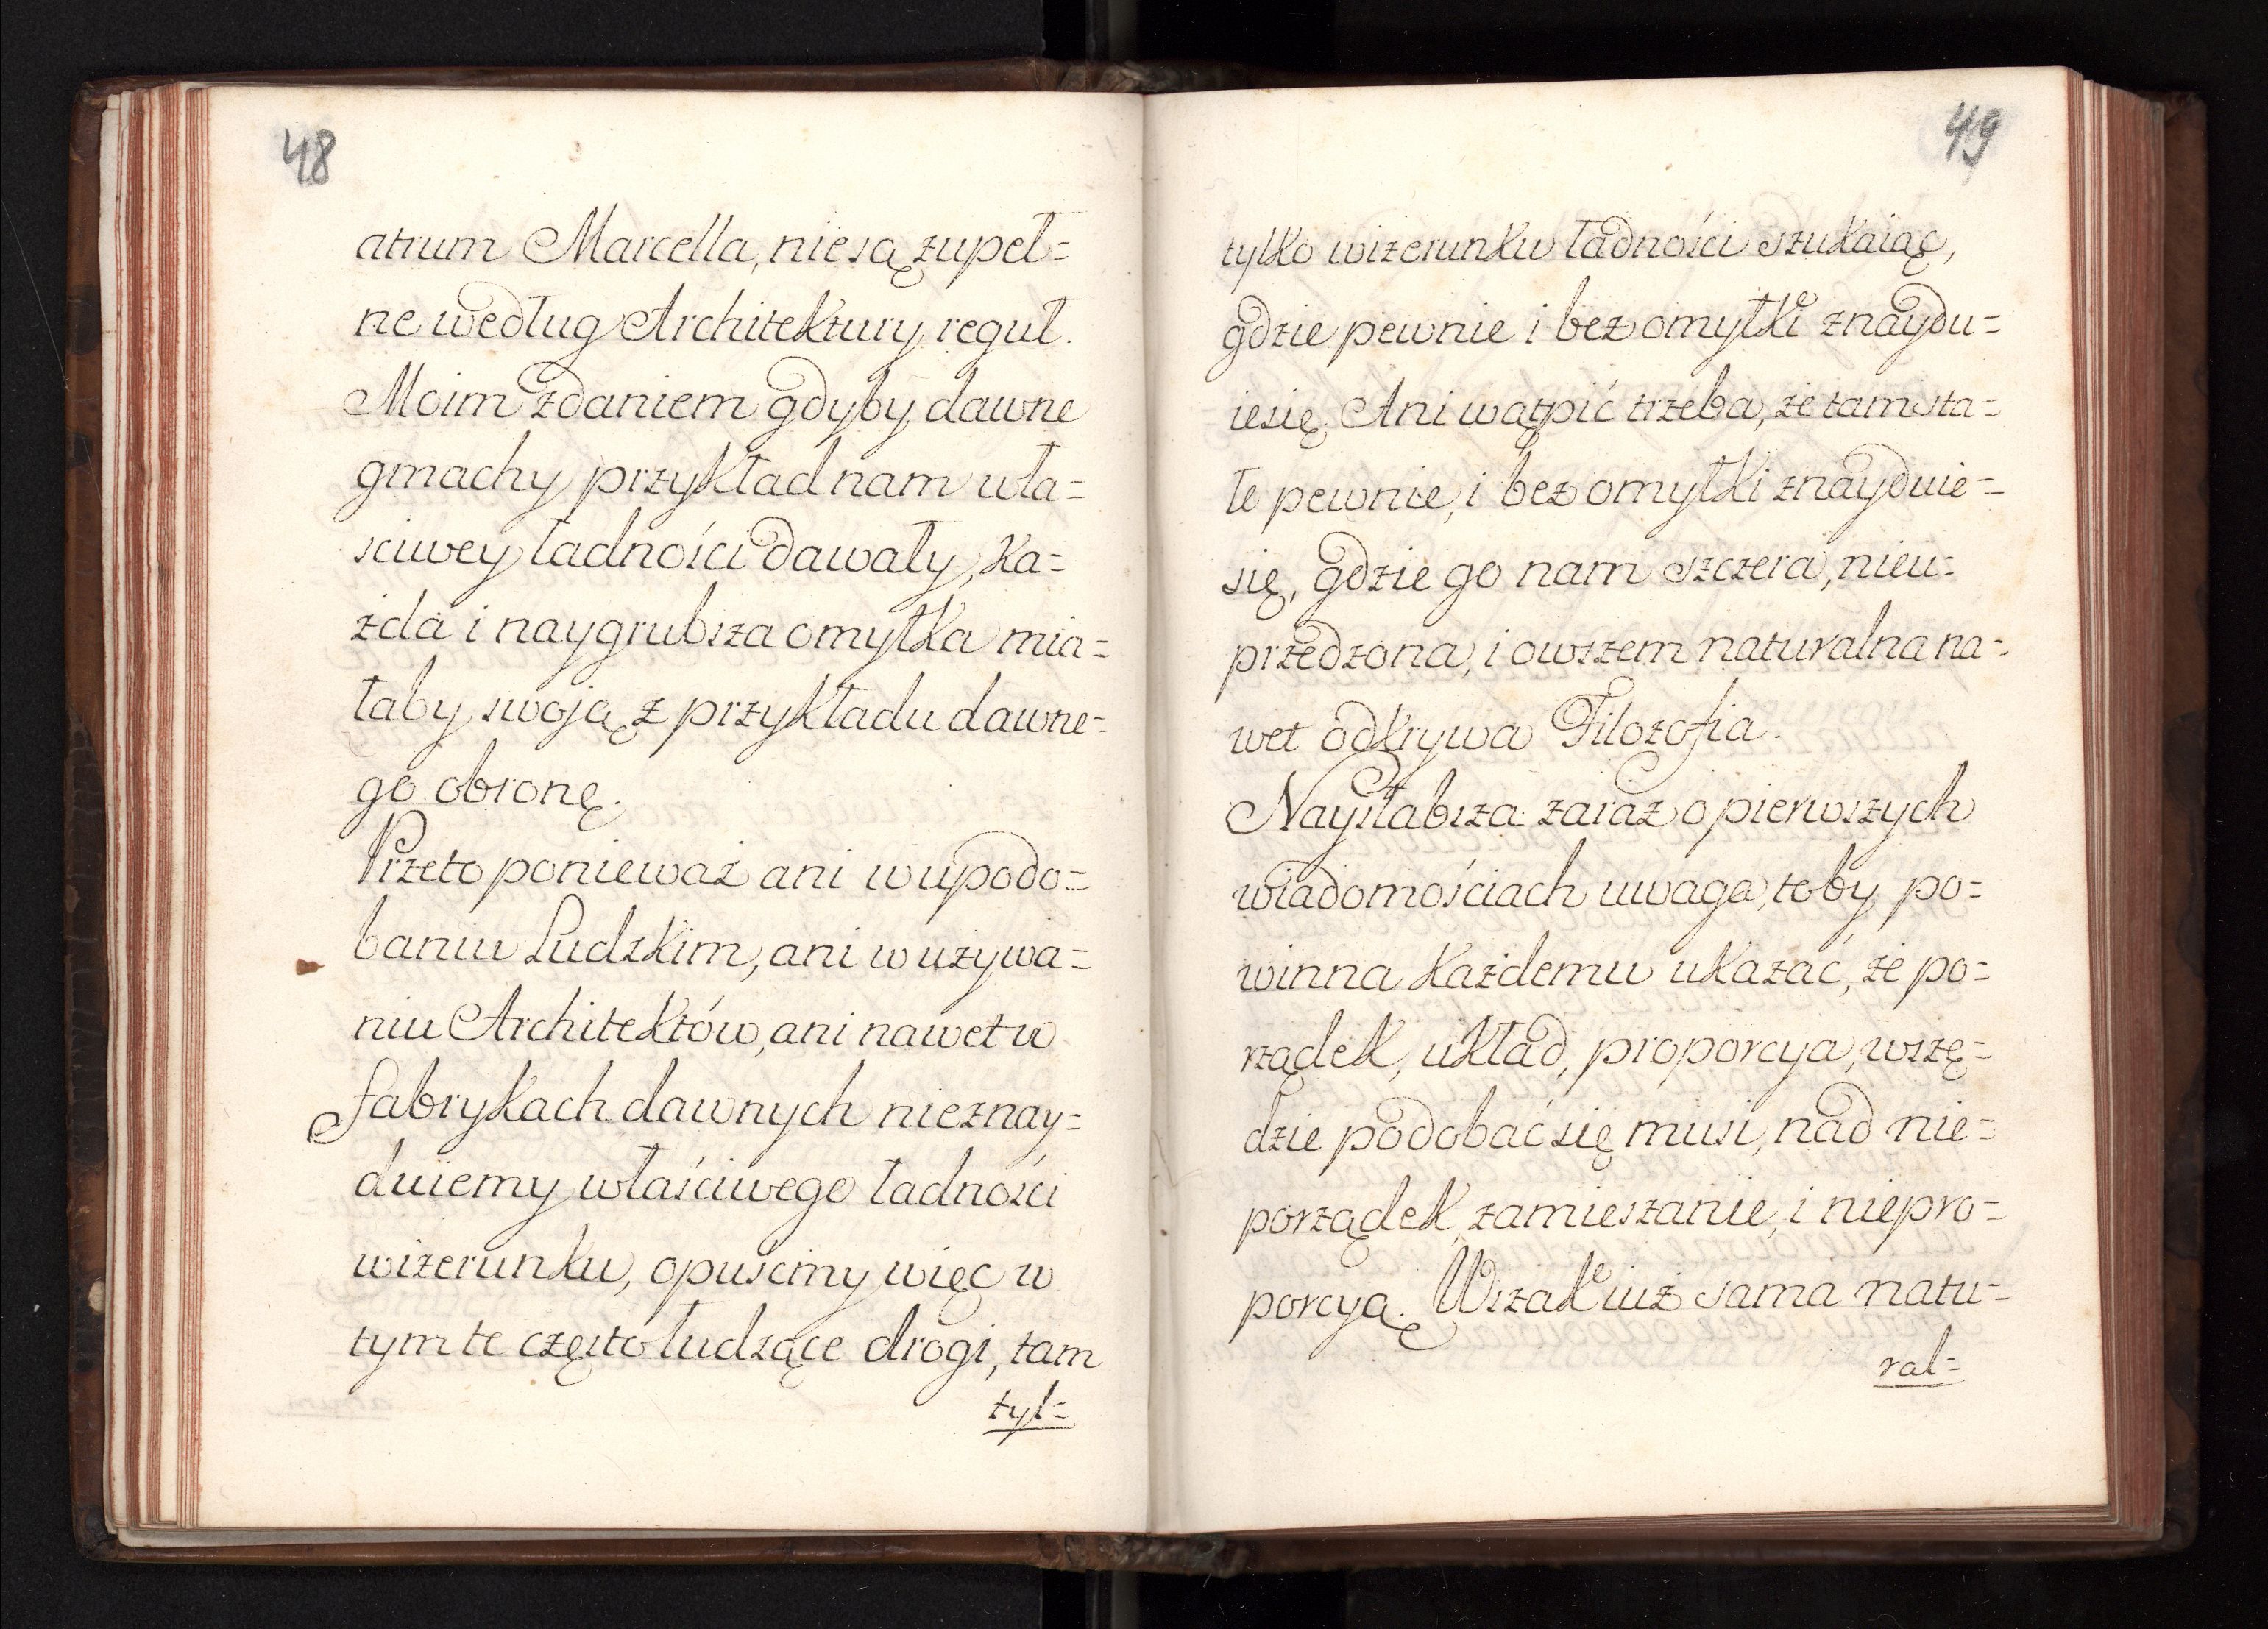 48
atrum Marcella, nie są zupeł=
ne według Architektury reguł.
Moim zdaniem gdyby dawne
gmachy przykład nam wła=
sciwey ładności dawały, ka=
żda i naygrubsza omyłka mia=
łaby swoją z przykładu dawne=
go obronę.
Przeto ponieważ ani w upodo=
baniu Ludzkim, ani w używa=
niu Architektów, ani nawet w
fabrykach dawnych nieznay=
duiemy właściwego ładności
wizerunku, opuścmy więc w
tym te często łudzące drogi, tam
tyl=
49
tylko wizerunku ładności szukaiąc,
gdzie pewnie i bez omyłki znaydu=
ie się. Ani wątpić trzeba, że tam sta=
le pewnie, i bez omyłki znayduie=
się, gdzie go nam szczera, nieu=
przedzona, i owszem naturalna na=
wet odkrywa Filozofia.
Naysłabsza zaraz o pierwszych
wiadomościach uwaga, toby po=
winna każdemu ukazać, że po=
rządek, układ, proporcya, wszę=
dzie podobać się musi, nad nie=
porządek, zamieszanie, i niepro=
porcyą. Wszak iuż sama natu=
ral=